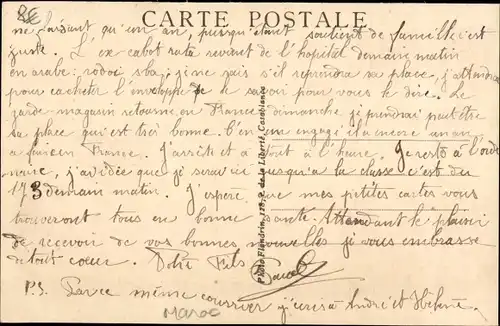 8€
CARTE POSTALE
ne faisant qu'un an, puisqu'étant soutient de famille c'est
juste. L'ex cabot rata revient de l'hopital demain matin
en arabe: sbag, je ne sais s'il reprendra sa place, j'attendrai
pour cacheter l'enveloppe de le savoir pour vous le dire. Le
garde-magasin retourne en France dimanche, je prendrai peut être
sa place qui est très bonne. C'en un engagé il a encore un an
a faire en France. J'arrête et à tout à l'heure. Je reste à l'ordi
naire, j'ai idée que je serai ici jusqu'à la classe c'est du
173 demain matin. J'espère que mes petites cartes vous
trouveront tous en bonne santé. Attendant le plaisir
de recevoir de vos bonnes nouvelles je vous embrasse
de tout coeur. Votre Fils
P.S. Par ce même courrier j'écris à André et Hélène
Photo Flandrin, 128, r. de la Liberté, Casablanca
Maroc